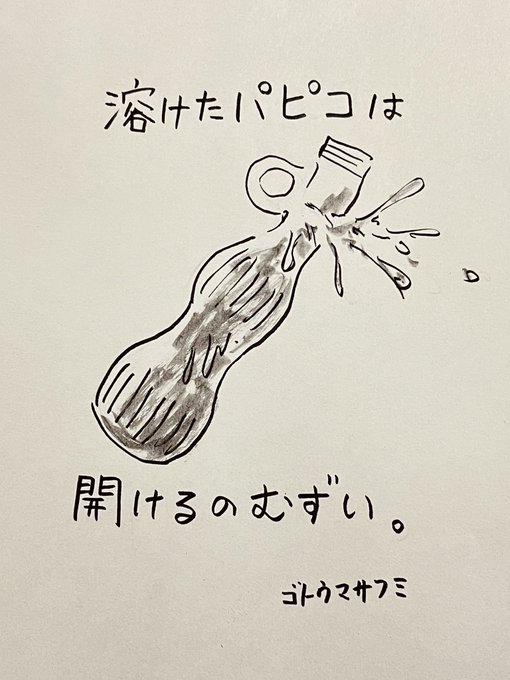 溶けたパピコは
開けるのむずい。
ゴトウマサフミ